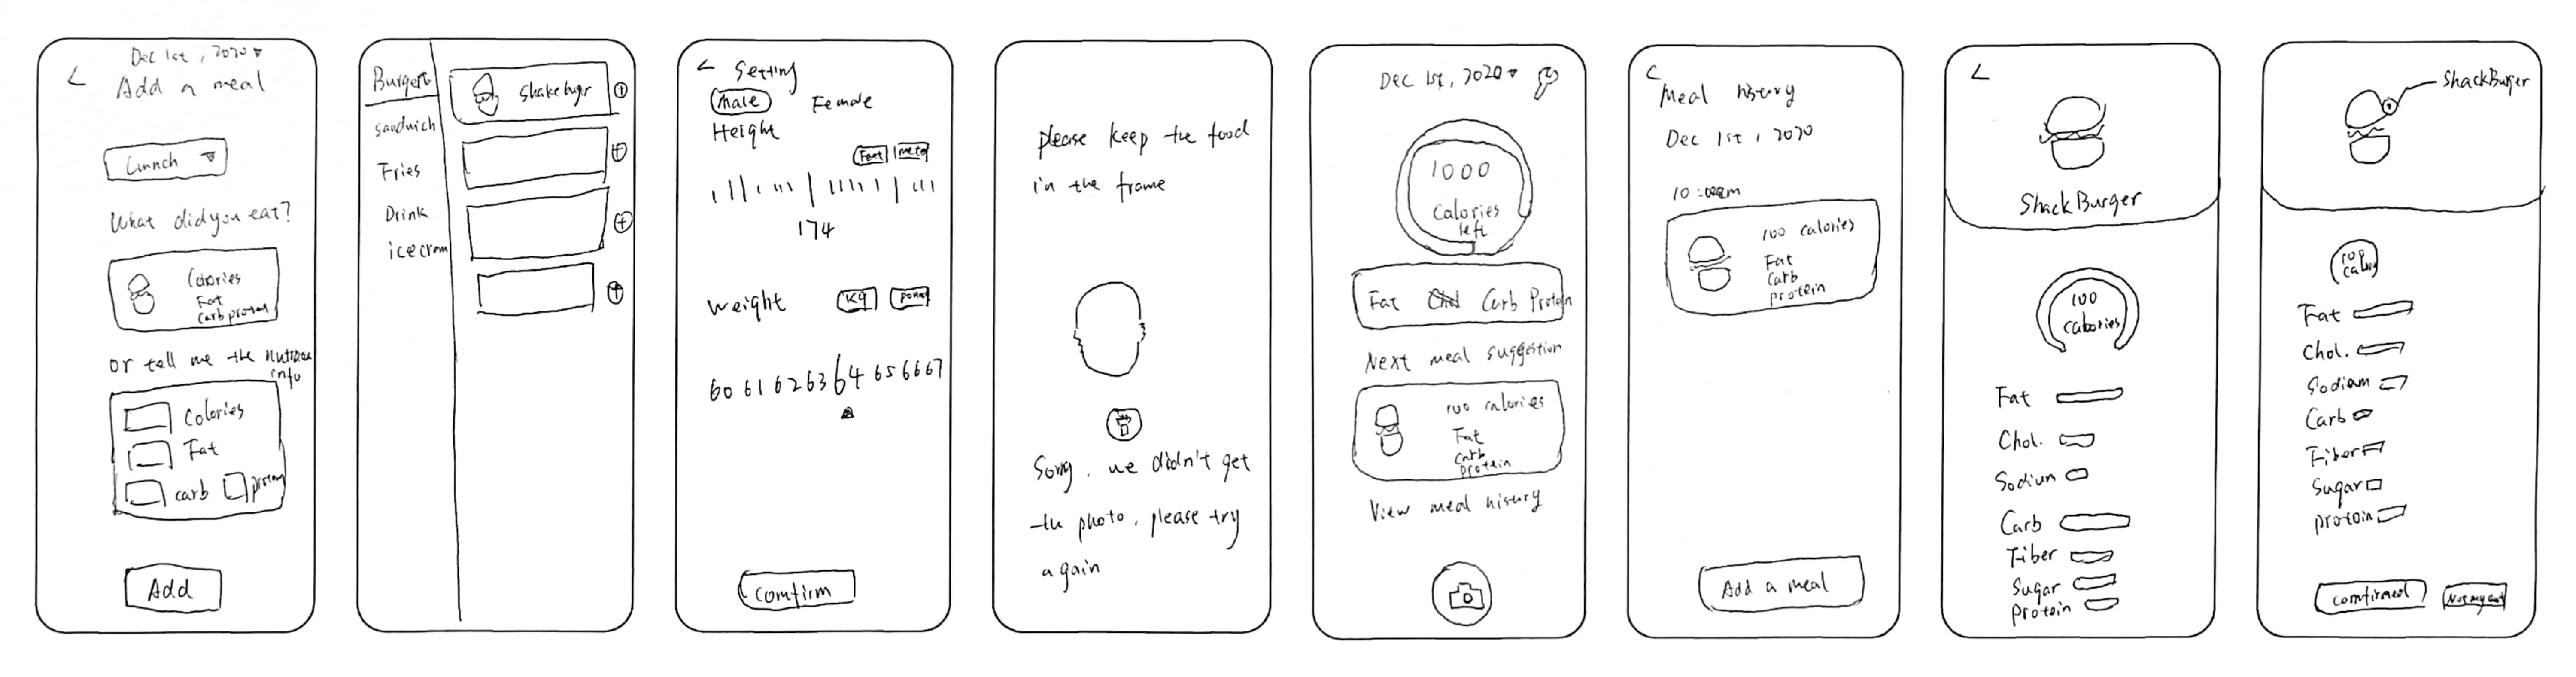 Dec 1st, 2020
Add a meal
Lunch
What did you eat?
Calories
Fat
Carb protein
or tell me the Nutrition
info
Calories
Fat
carb protein
Add
Burgers
Sandwich
Fries
Drink
ice cream
Shake bugr
Setting
Male Female
Height
Feet meter
174
Weight KG
60 61 62 63 64 65 66 67
Comfirm
please keep the food
in the frame
Sorry, we didn't get
the photo, please try
again
Dec 1st, 2020
1000
Calories
left
Fat Carb Protein
Next meal suggestion
100 calories
Fat
carb
protein
View meal history
Meal history
Dec 1st, 2020
10:00am
100 calories
Fat
Carb
protein
Add a meal
ShackBurger
100
calories
Fat
Chol.
Sodium
Carb
Fiber
Sugar
Protein
ShackBurger
100
Fat
Chol.
Sodium
Carb
Fiber
Sugar
protein
Comfirmed